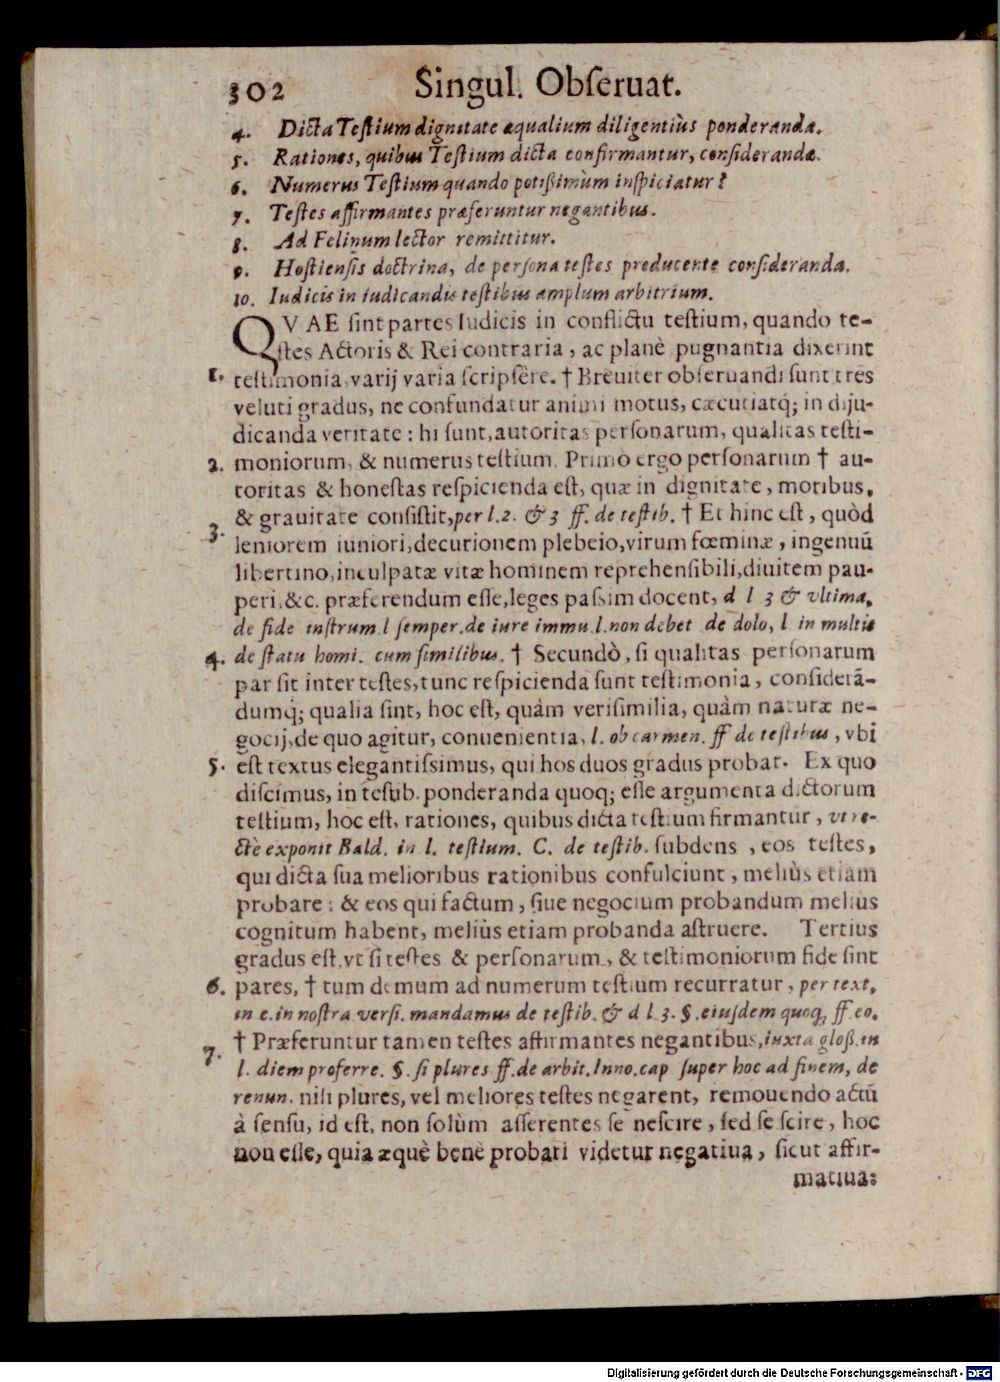 302 Singul. Obſeruat.
4. Dicta Teſtium dignitate æqualium diligentiùs ponderanda.
5. Rationes, quibus Teſtium dicta confirmantur, conſiderandæ.
6. Numerus Teſtium quando potißimùm inſpiciatur?
7. Teſtes affirmantes præferuntur negantibus.
8. Ad Felinum lector remittitur.
9. Hoſtienſis doctrina, de perſona teſtes producente conſideranda.
10. Iudicis in iudicandis teſtibus amplum arbitrium.
QVAE ſint partes Iudicis in conflictu teſtium, quando te-
ſtes Actoris & Rei contraria, ac planè pugnantia dixerint
1. teſtimonia, varij varia ſcripſêre. † Breuiter obſeruandi ſunt tres
veluti gradus, ne confundatur animi motus, cæcutiatq́; in diju-
dicanda veritate: hi ſunt, autoritas perſonarum, qualitas teſti-
2. moniorum, & numerus teſtium. Primò ergo perſonarum † au-
toritas & honeſtas reſpicienda eſt, quæ in dignitate, moribus,
& grauitate conſiſtit, per l. 2. & 3 ff. de teſtib. † Et hinc eſt, quòd
3. ſeniorem iuniori, decurionem plebeio, virum fœminæ, ingenuũ
libertino, inculpatæ vitæ hominem reprehenſibili, diuitem pau-
peri, &c. præferendum eſſe, leges paſsim docent, d l 3 & vltima,
de fide inſtrum. l ſemper. de iure immu. l. non debet de dolo, l in multis
4. de ſtatu homi. cum ſimilibus. † Secundò, ſi qualitas perſonarum
par ſit inter teſtes, tunc reſpicienda ſunt teſtimonia, conſiderã-
dumq́; qualia ſint, hoc eſt, quàm veriſimilia, quàm naturæ ne-
gocij, de quo agitur, conuenientia, l. ob carmen. ff de teſtibus, vbi
5. eſt textus elegantiſsimus, qui hos duos gradus probat. Ex quo
diſcimus, in teſtib. ponderanda quoq; eſſe argumenta dictorum
teſtium, hoc eſt, rationes, quibus dicta teſtium firmantur, vt re-
ctè exponit Bald. in l. teſtium. C. de teſtib. ſubdens, eos teſtes,
qui dicta ſua melioribus rationibus confulciunt, meliùs etiam
probare: & eos qui factum, ſiue negocium probandum meliùs
cognitum habent, meliùs etiam probanda aſtruere. Tertius
gradus eſt, vt ſi teſtes & perſonarum, & teſtimoniorum fide ſint
6. pares, † tum demum ad numerum teſtium recurratur, per text.
in c. in noſtra verſi. mandamus de teſtib. & d l. 3. §. eiuſdem quoq; ff. eo.
7. † Præferuntur tamen teſtes affirmantes negantibus, iuxta gloß. in
l. diem proferre. §. ſi plures ff. de arbit. Inno. cap ſuper hoc ad finem, de
renun. niſi plures, vel meliores teſtes negarent, remouendo actũ
à ſenſu, id eſt, non ſolùm aſſerentes ſe neſcire, ſed ſe ſcire, hoc
non eſſe, quia æquè benè probari videtur negatiua, ſicut affir-
matiua:
Digitalisierung gefördert durch die Deutsche Forschungsgemeinschaft - DFG